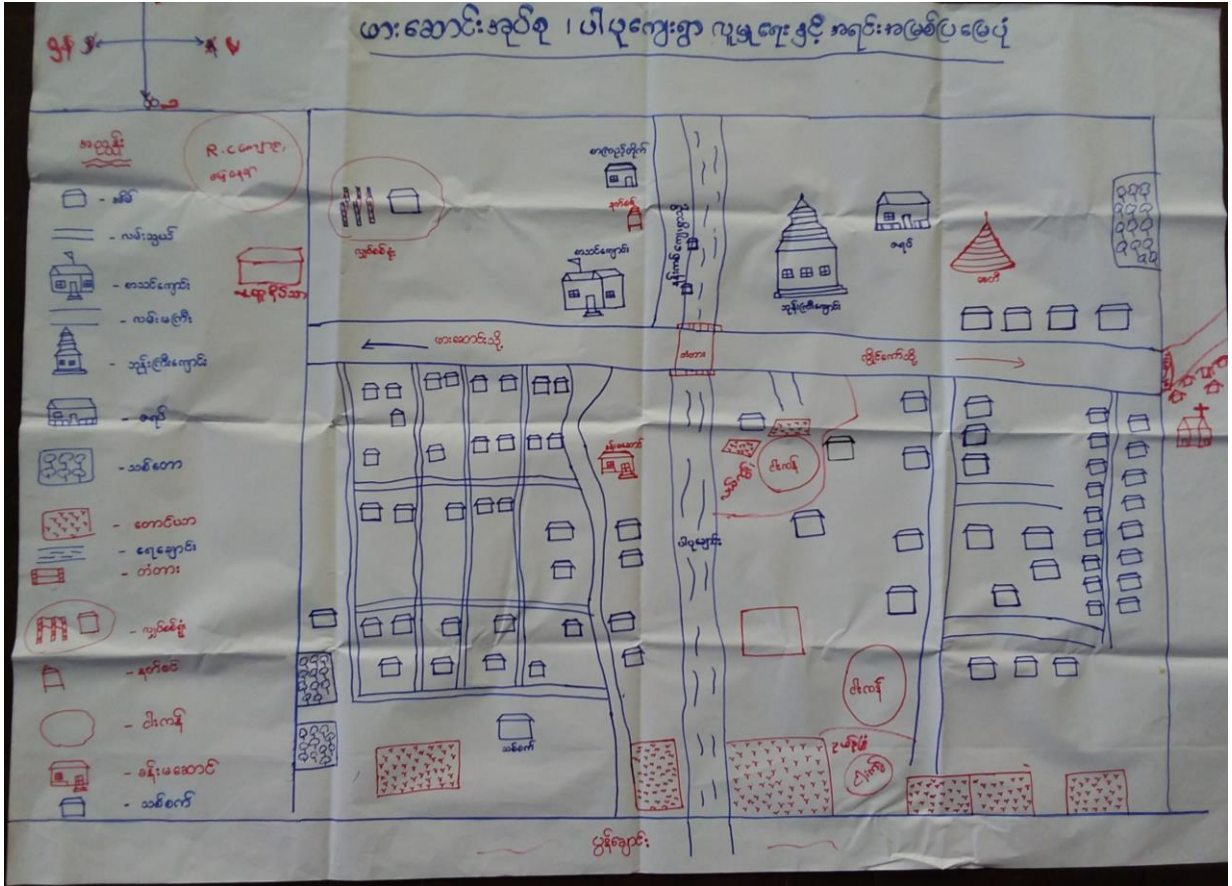 ဖားဆောင်းအုပ်စု ၊ ပါပူကျေးရွာ လူမှုရေး နှင့် အရင်းအမြစ်ပြ မြေပုံ
အညွှန်း
- အိမ်
- လမ်းသွယ်
- စာသင်ကျောင်း
- လမ်းမကြီး
- ဘုန်းကြီးကျောင်း
- ဇရပ်
- သစ်တော
- တောင်ယာ
- ရေချောင်း
- တံတား
- လျှပ်စစ်ရုံ
- နတ်စင်
- ငါးကန်
- ခန်းမဆောင်
- သစ်စက်
လျှပ်စစ်ရုံ
စာကြည့်တိုက်
နတ်စင်
စာသင်ကျောင်း
ဘုန်းကြီးကျောင်း
ဇရပ်
စေတီ
ဖားဆောင်းသို့
တံတား
လွိုင်ကော်သို့
ခန်းမဆောင်
ငါးကန်
ပါပူချောင်း
ငါးကန်
သစ်စက်
ပွန်ချောင်း